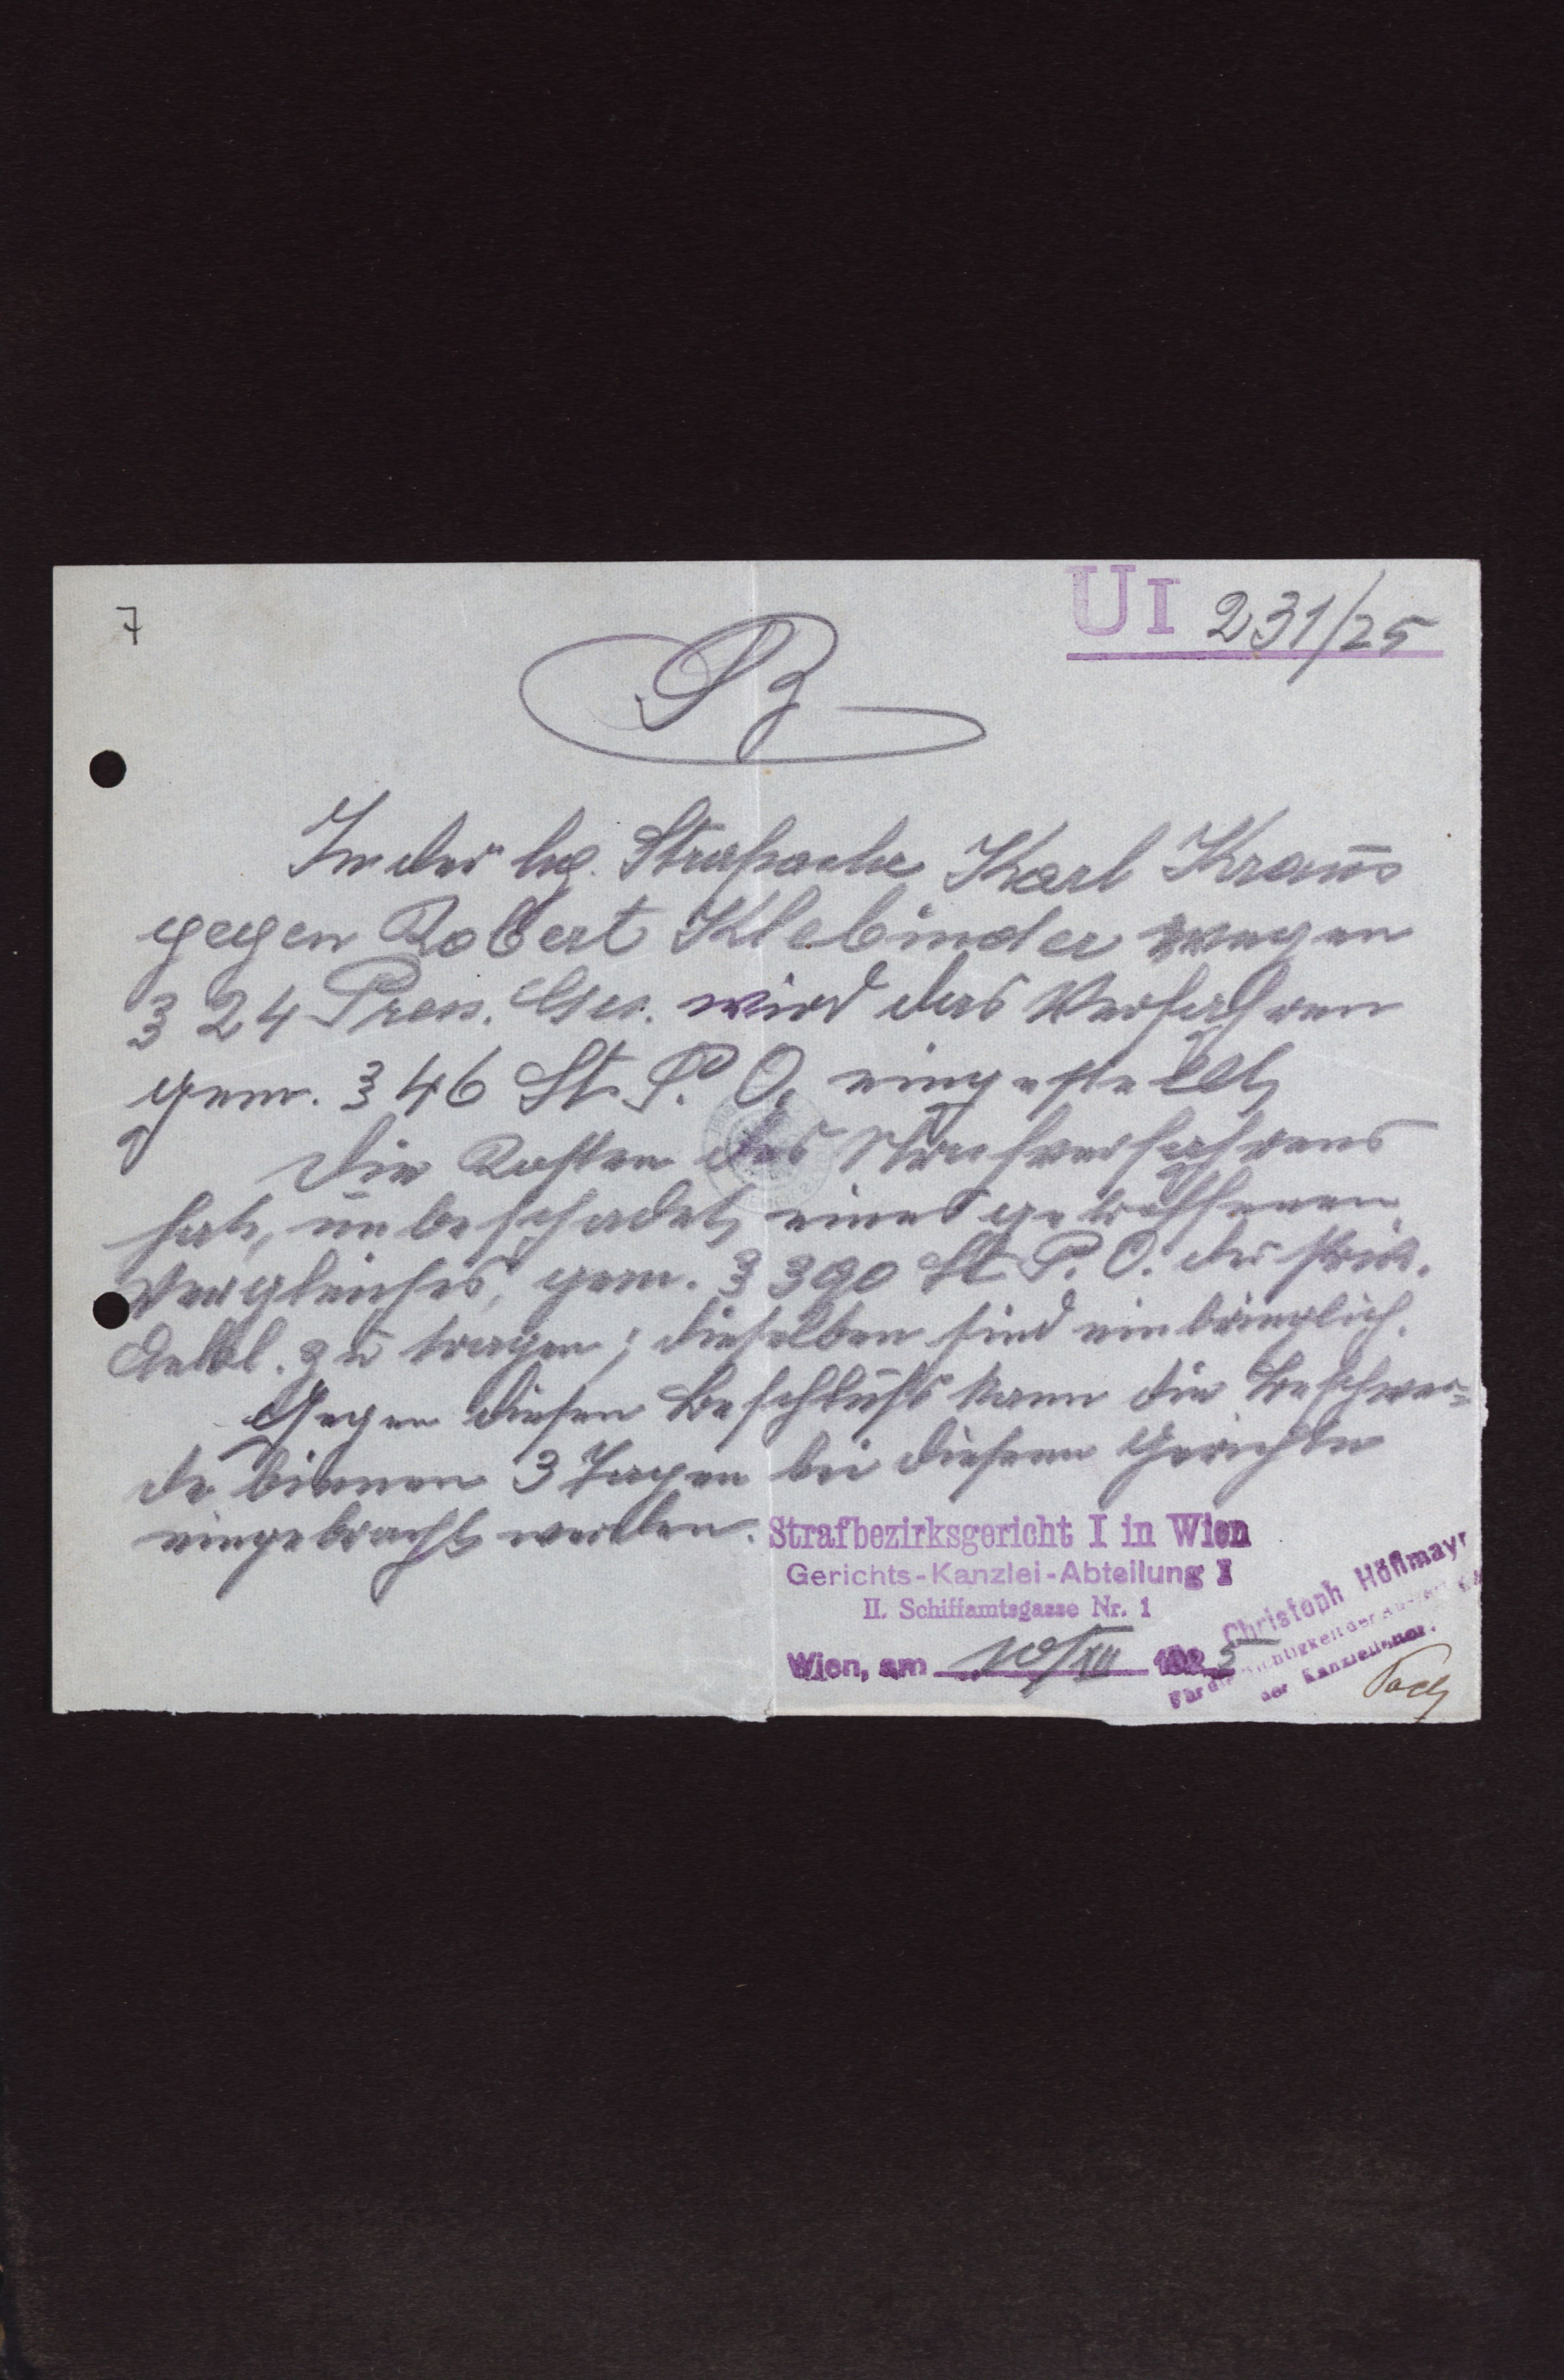 7
UI 231/25
B
In der hg. Strafsache Karl Kraus
gegen Robert Klebinder wegen
§ 24 Press. Ges. wird das Verfahren
gem. § 46 St. P. O. eingestellt,
Die Kosten des Strafverfahrens
hat, unbeschadet eines getroffenen
Vergleiches, gem. § 390 St. P. O. der Priv.
Ankl. zu tragen; dieselben sind einbringlich.
Gegen diesen Beschluß kann die Beschwer=
de binnen 3 Tagen bei diesem Gerichte
eingebracht werden.
Strafbezirksgericht I in Wien
Gerichts-Kanzlei-Abteilung I
II. Schiffamtsgasse Nr. 1
Wien, am 10/XII 1925
Christoph Höflmayr
Für die Richtigkeit der Ausfertigung
der Kanzleileiter: